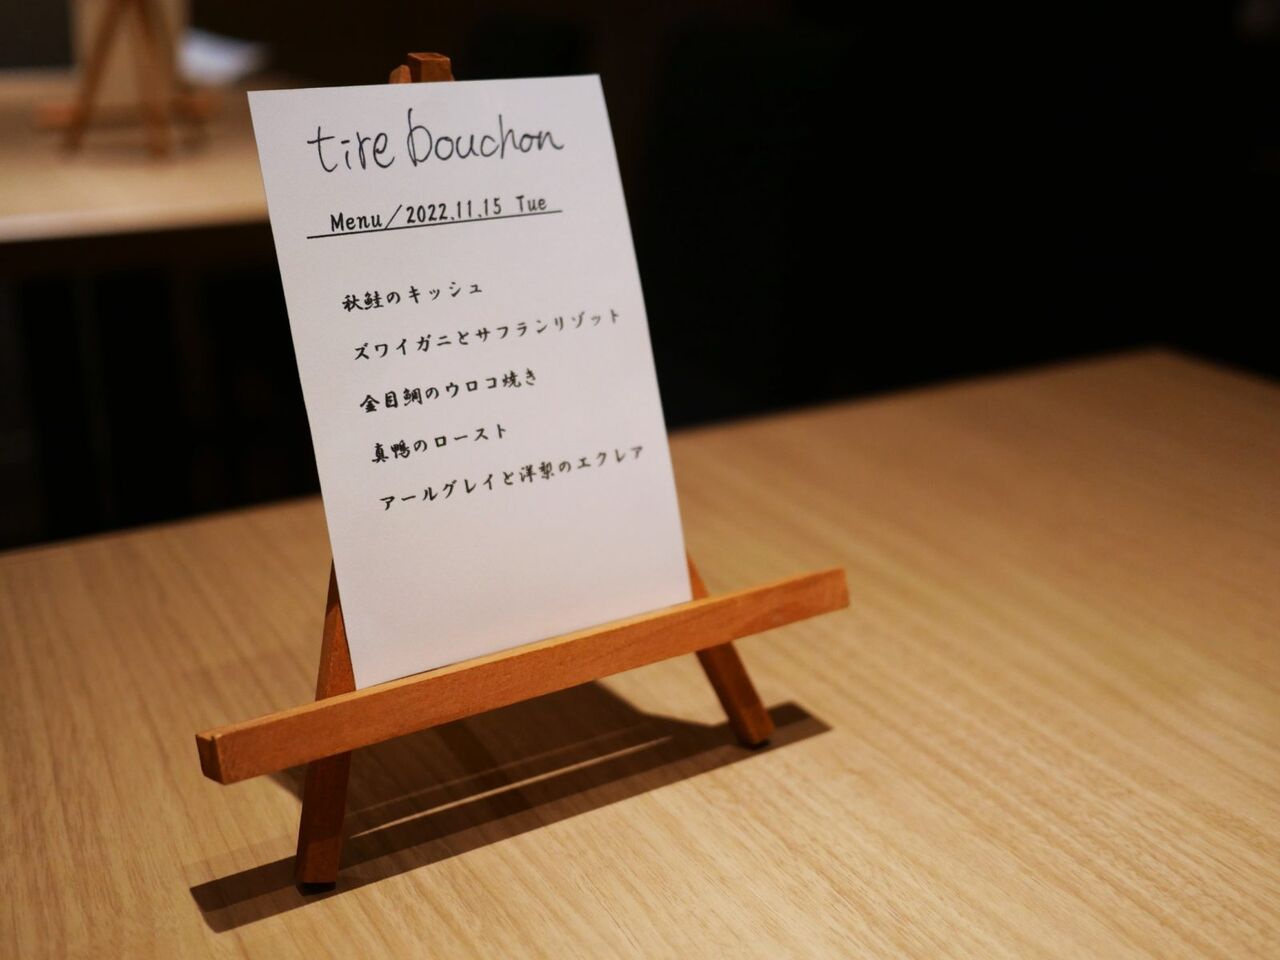 tire bouchon
Menu/2022.11.15 Tue
秋鮭のキッシュ
ズワイガニとサフランリゾット
金目鯛のウロコ焼き
真鴨のロースト
アールグレイと洋梨のエクレア